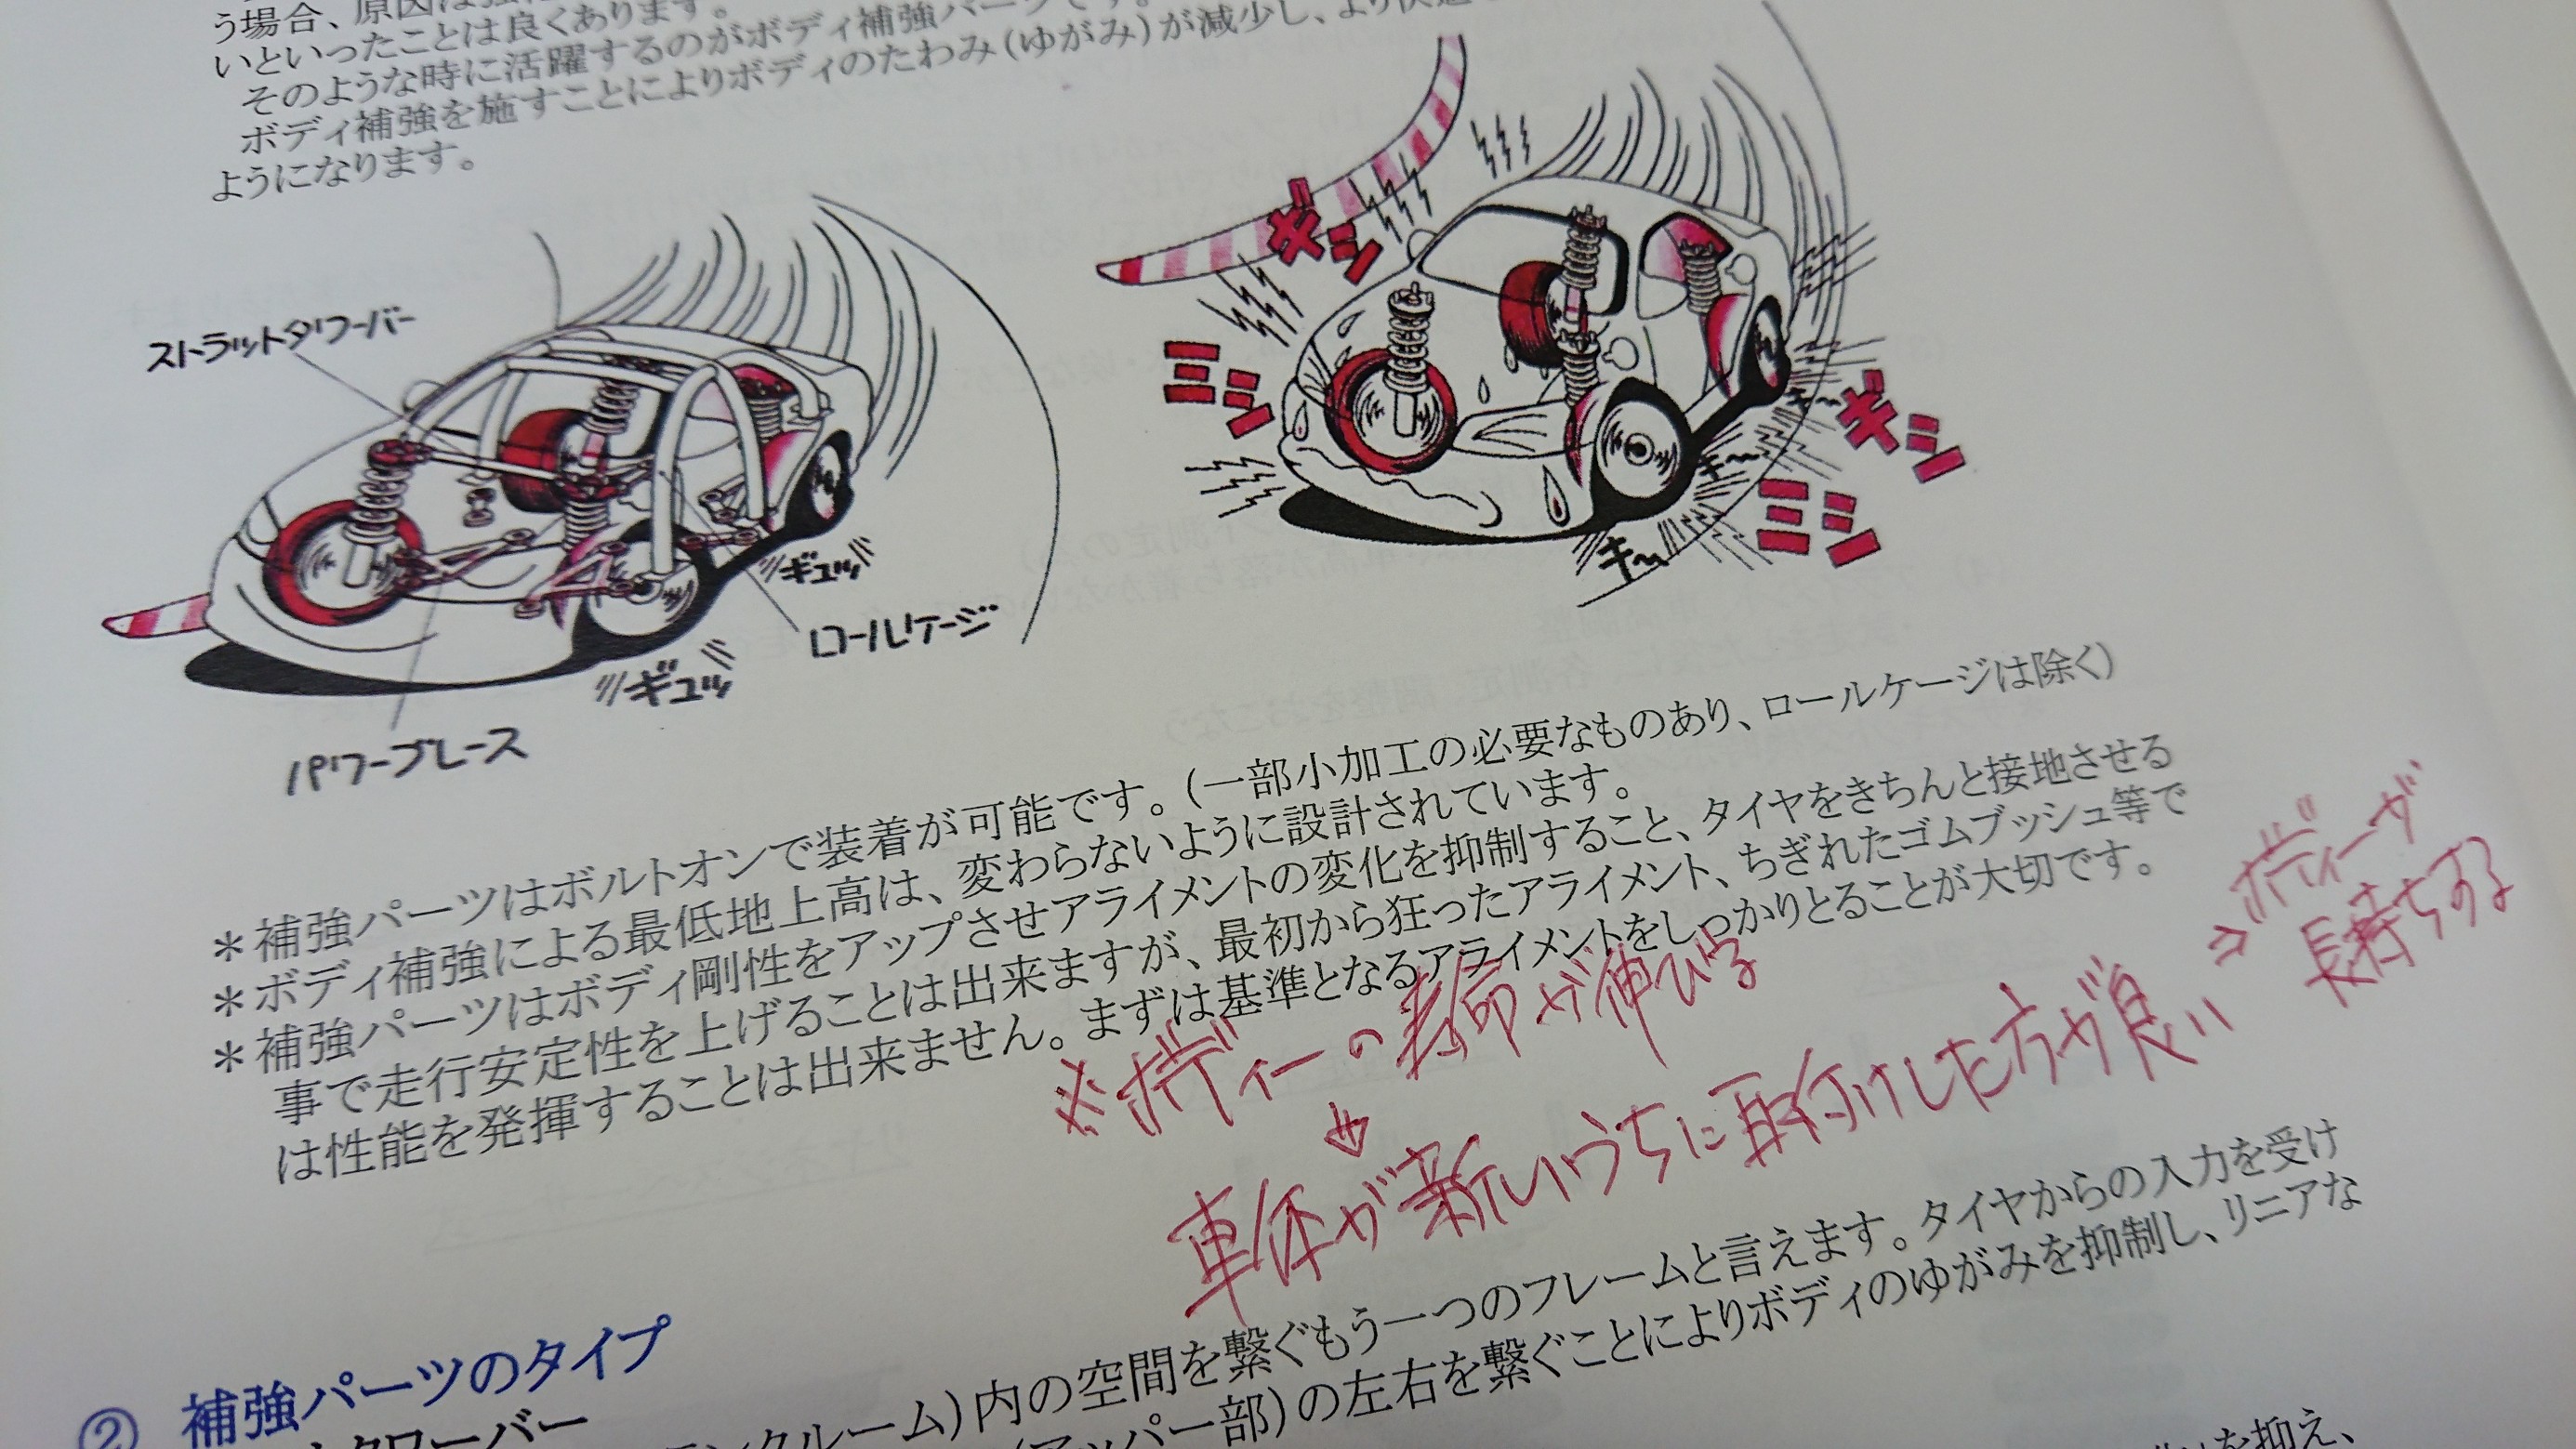 う場合、原因は強
いといったことは良くあります。
そのような時に活躍するのがボディ補強パーツです。
ボディ補強を施すことによりボディのたわみ(ゆがみ)が減少し、より快適
ようになります。
ストラットタワーバー
ギシ
ミシ
ギシ
ミシ
キー
キー
キー
ギュッ
ギュッ
ロールケージ
パワーブレース
＊補強パーツはボルトオンで装着が可能です。(一部小加工の必要なものあり、ロールケージは除く)
＊ボディ補強による最低地上高は、変わらないように設計されています。
＊補強パーツはボディ剛性をアップさせアライメントの変化を抑制すること、タイヤをきちんと接地させる
事で走行安定性を上げることは出来ますが、最初から狂ったアライメント、ちぎれたゴムブッシュ等で
は性能を発揮することは出来ません。まずは基準となるアライメントをしっかりとることが大切です。
※ボディーの寿命が伸びる
↓
車体が新いうちに取付けした方が良い
⇒ボディーが
長持ちする
② 補強パーツのタイプ
タワーバー
ンクルーム)内の空間を繋ぐもう一つのフレームと言えます。タイヤからの入力を受け
(アッパー部)の左右を繋ぐことによりボディのゆがみを抑制し、リニアな
を抑え、